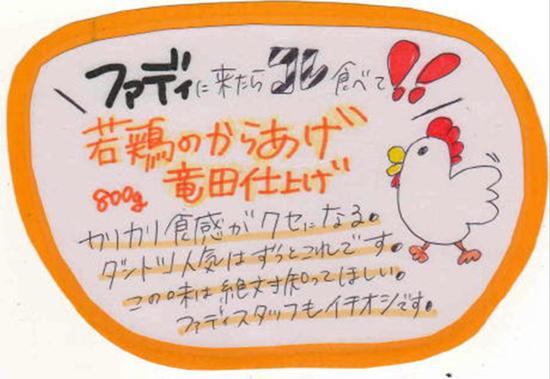 ファディに来たらコレ食べて!!
若鶏のからあげ
竜田仕上げ
800g
カリカリ食感がクセになる。
ダントツ人気はずっとこれです。
この味は絶対知ってほしい。
ファディスタッフもイチオシです。